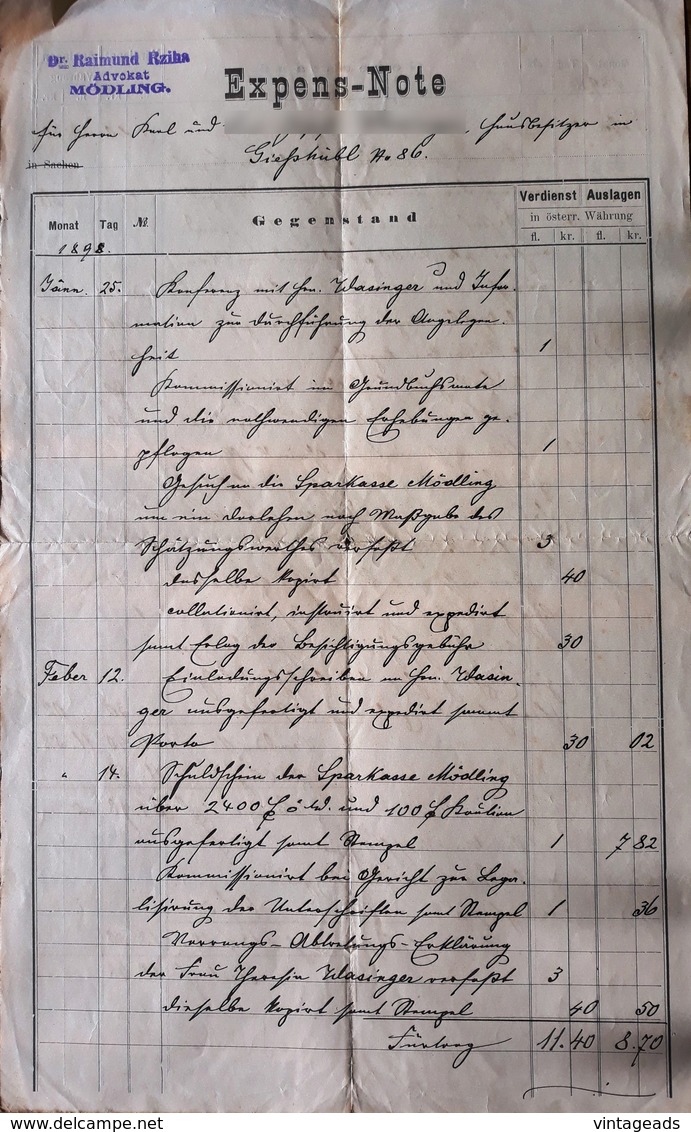 Dr. Raimund Rziha
Advokat
MÖDLING.
Expens-Note
für Herrn Karl und Hausbesitzer in
in Sachen
Gießhübl No 86.
Monat Tag № Gegenstand Verdienst Auslagen
in österr. Währung
fl. kr. fl. kr.
1898.
Jänn. 25. Konferenz mit Hrn. Wasinger und Infor-
mation zur Durchführung der Angelegen-
heit 1
Kommissionirt im Grundbuchsamte
und die nothwendigen Erhebungen ge-
pflogen 1
Gesuch an die Sparkasse Mödling
um ein Darlehen nach Maßgabe des
Schätzungswerthes verfaßt 3
dasselbe kopirt 40
collationirt, instruirt und expedirt
samt Erlag der Besichtigungsgebühr 30
Feber 12. Einladungsschreiben an Hrn. Wasin-
ger ausgefertigt und expedirt sammt
Porto 30 02
" 14. Schuldschein der Sparkasse Mödling
über 2400 f ö. W. und 100 f Kaution
ausgefertigt samt Stempel 1 7 82
Kommissionirt bei Gericht zur Lega-
lisirung der Unterschriften samt Stempel 1 36
Vorrangs-Abtretungs-Erklärung
der Frau Theresia Wasinger verfaßt 3
dieselbe kopirt samt Stempel 40 50
Fürtrag 11.40 8.70
vintageads